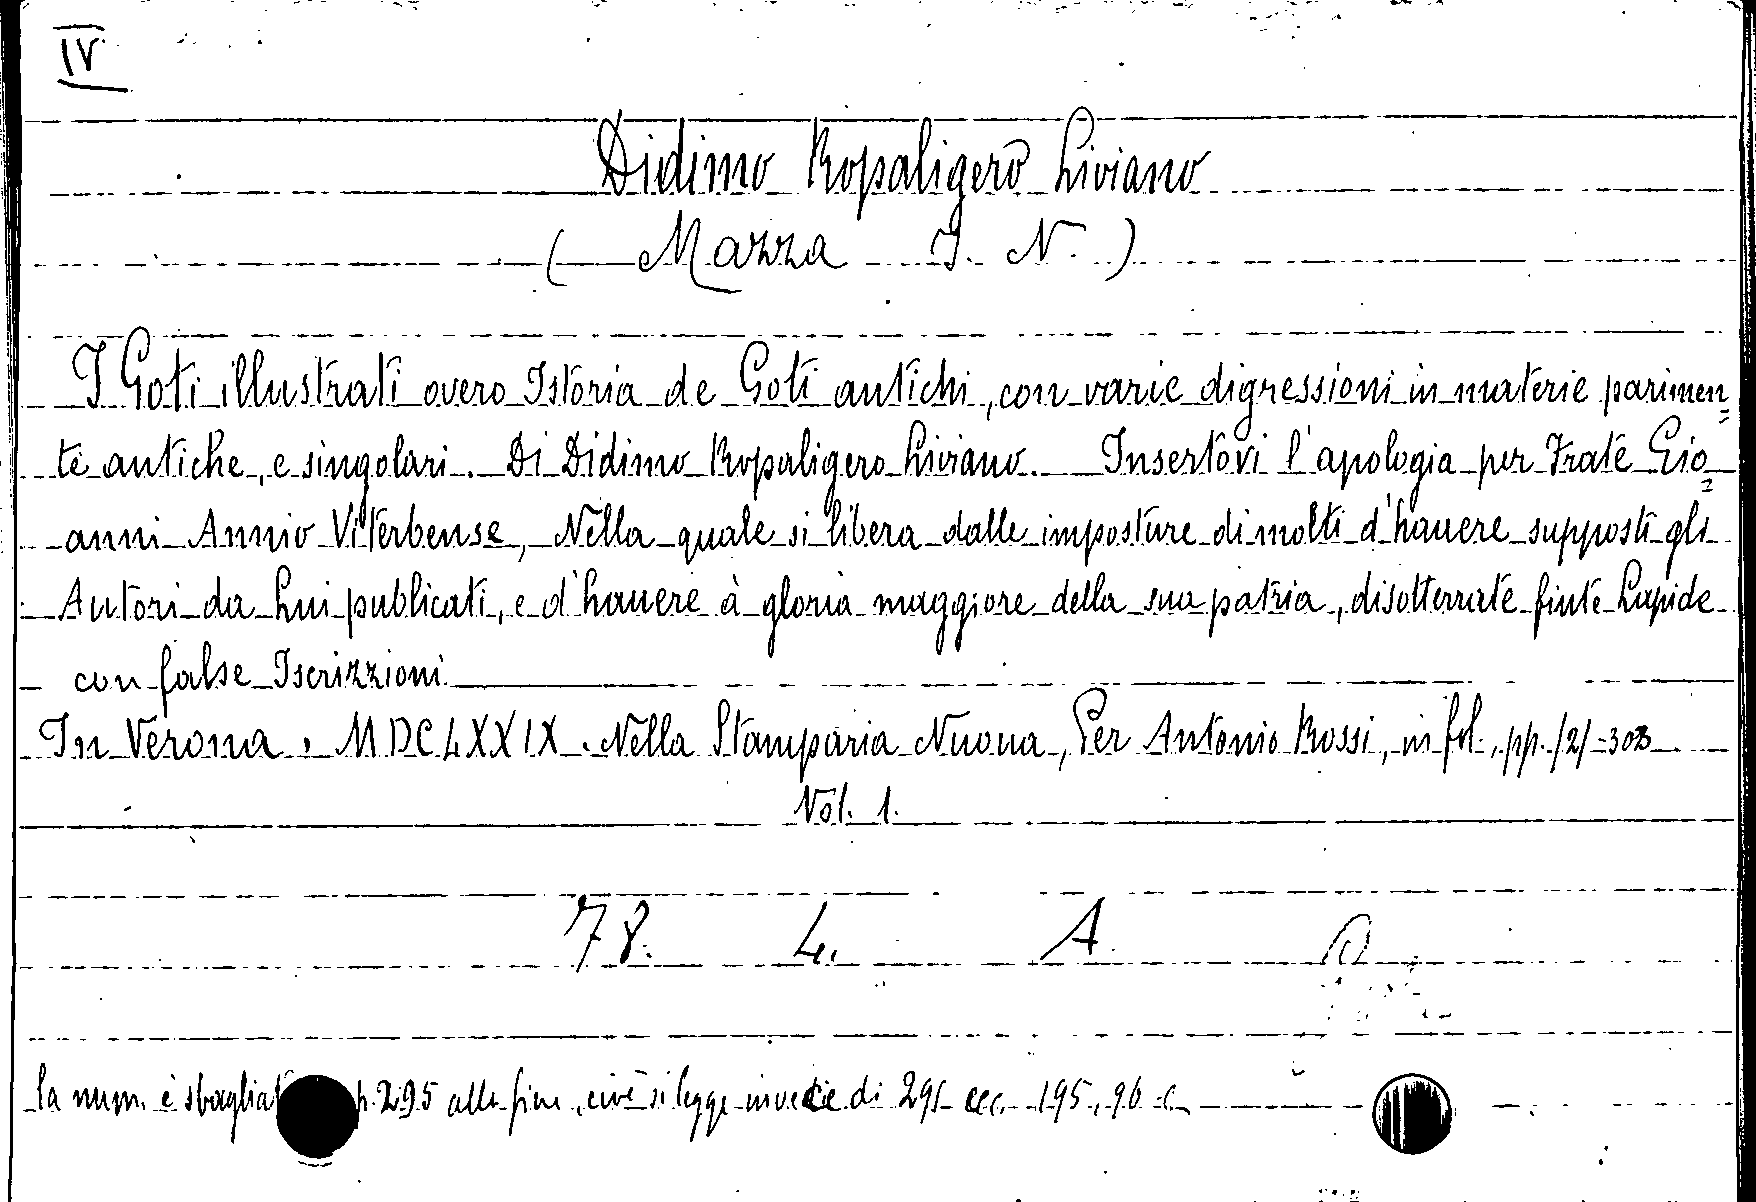 IV
Didimo Ropaligero Liviano
( Mazza I. N. )
I Goti illustrati overo Istoria de Goti antichi, con varie digressioni in materie parimen=
te antiche, e singolari. Di Didimo Ropaligero Liviano. Insertovi l'apologia per Frate Gio=
anni Annio Viterbense, Nella quale si libera dalle imposture di molti d'hauere supposti gli
Autori da Lui publicati, e d'hauere à gloria maggiore della sua patria, disotterrate finte Lapide
con false Iscrizzioni
In Verona, MDCLXXIX. Nella Stamparia Nuoua, Per Antonio Rossi, in fol., pp. /2/-303
Vol. 1.
78. 4. A
la num. è sbagliat p. 295 alla fine, cioè si legge invece di 291 ecc. 195, 96